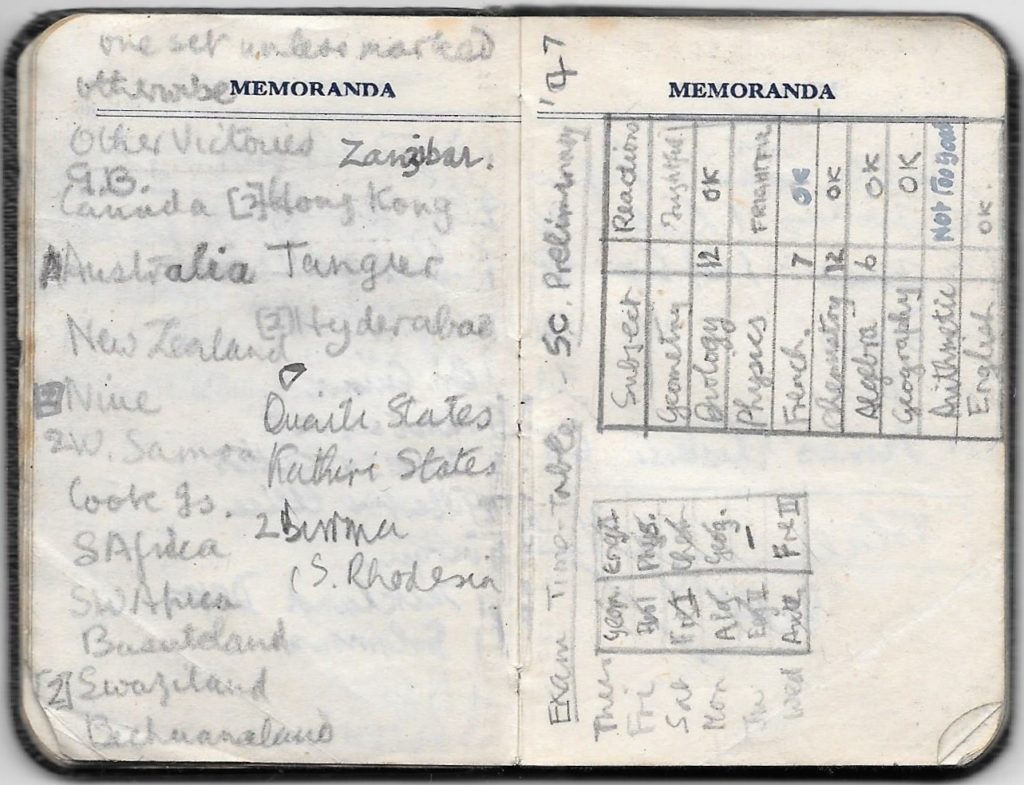 one set unless marked
otherwise
MEMORANDA
Other Victories
G.B.
Canada
Australia
New Zealand
Niue
2 W. Samoa
Cook Is.
S Africa
SW Africa
Basutoland
[2] Swaziland
Bechuanaland
Zanzibar.
[2] Hong Kong
Tangier
[2] Hyderabad
Quaiti States
Kathiri States
2 Burma
S. Rhodesia
MEMORANDA
Exam Time-Table - SC. Preliminary '47
Subject Reactions
Geometry Frightful
Biology 12 OK
Physics FRIGHTFUL
French 7 OK
Chemistry 12 OK
Algebra 6 OK
Geography OK
Arithmetic NOT TOO GOOD
English OK.
Thurs Geom Engl I
Fri Biol Phys.
Sat Fr I Chem
Mon Alg Geog.
Tu Eng II —
Wed Arith Fr II